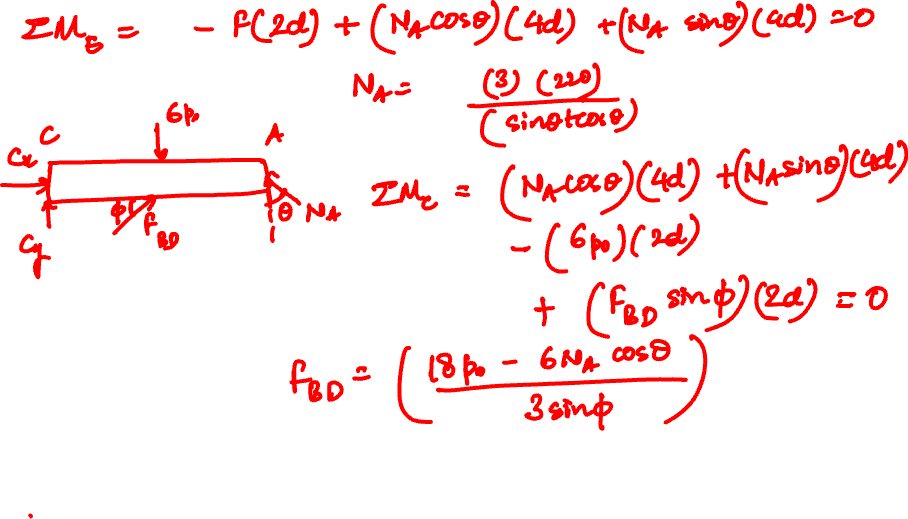 ΣM_E = - F(2d) + (N_A cosθ)(4d) + (N_A sinθ)(4d) = 0
N_A = (3)(220) / (sinθ + cosθ)
6p₀
C A
Cx
ΣM_C = (N_A cosθ)(4d) + (N_A sinθ)(4d)
φ F_BD θ N_A
Cy
- (6p₀)(2d)
+ (F_BD sinφ)(2d) = 0
F_BD = ( (18p₀ - 6N_A cosθ) / (3 sinφ) )